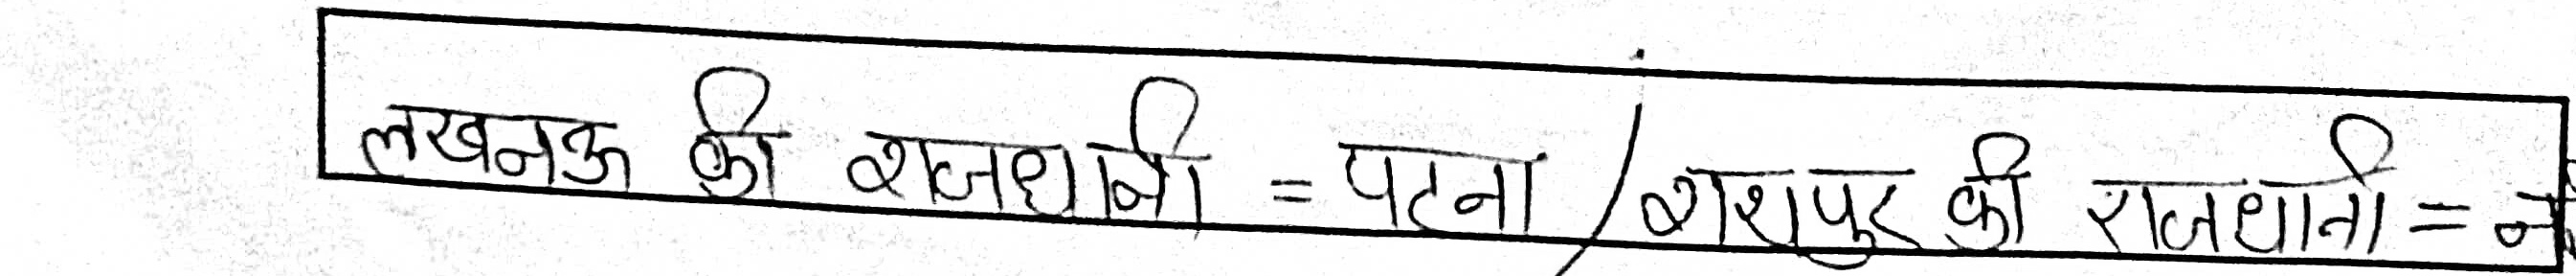 लखनऊ की राजधानी = पटना / रायपुर की राजधानी =